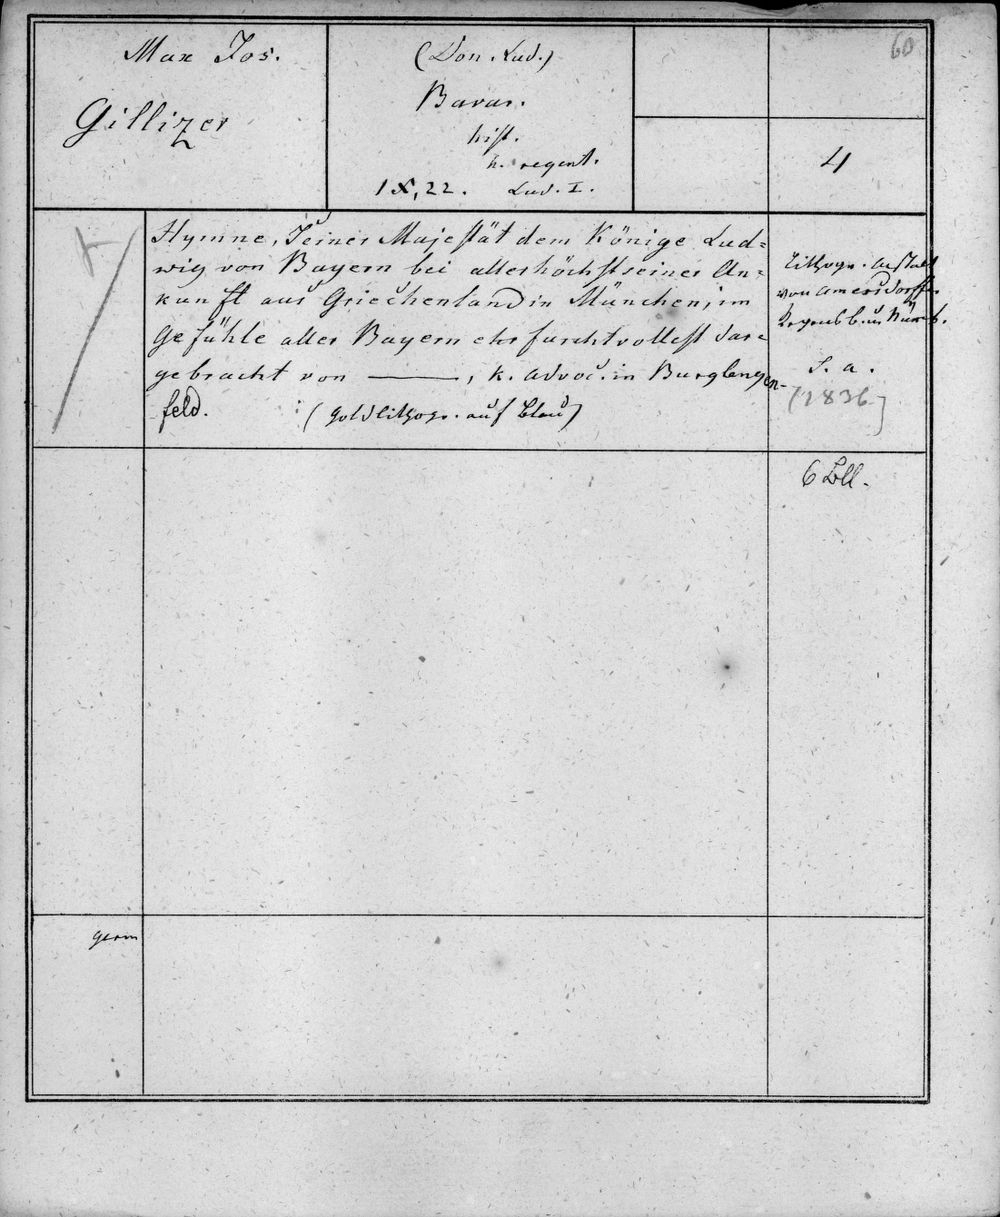 60
Max Jos.
Gillizer
(Don. Lud.)
Bavar.
hist.
h. regent.
IX, 22. Lud. I.
4
Hymne, Seiner Majestät dem Könige Lud=
wig von Bayern bei allerhöchstseiner An=
kunft aus Griechenland in München, im
Gefühle aller Bayern ehrfurchtvollest dar=
gebracht von ———, k. Advoc. in Burglengen-
feld. (Goldlithogr. auf blau)
Lithogr. Anstalt
von Amersdorffer
Regensb. u. Nürnb.
S. a.
[1836]
6 Bll.
germ